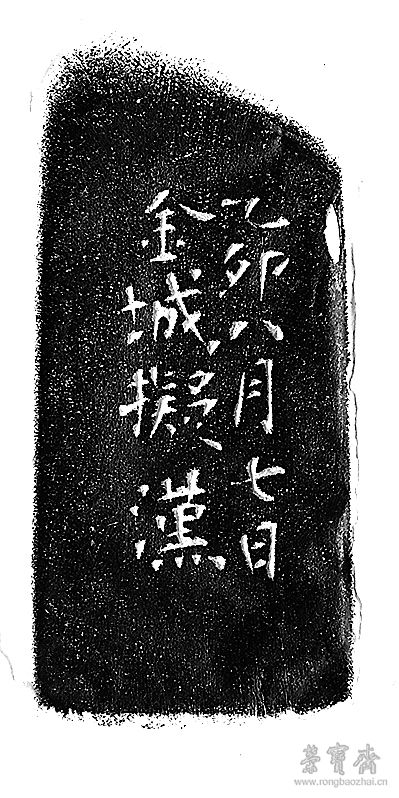 乙卯八月七日
金城擬漢
榮寶齋
www.rongbaozhai.cn